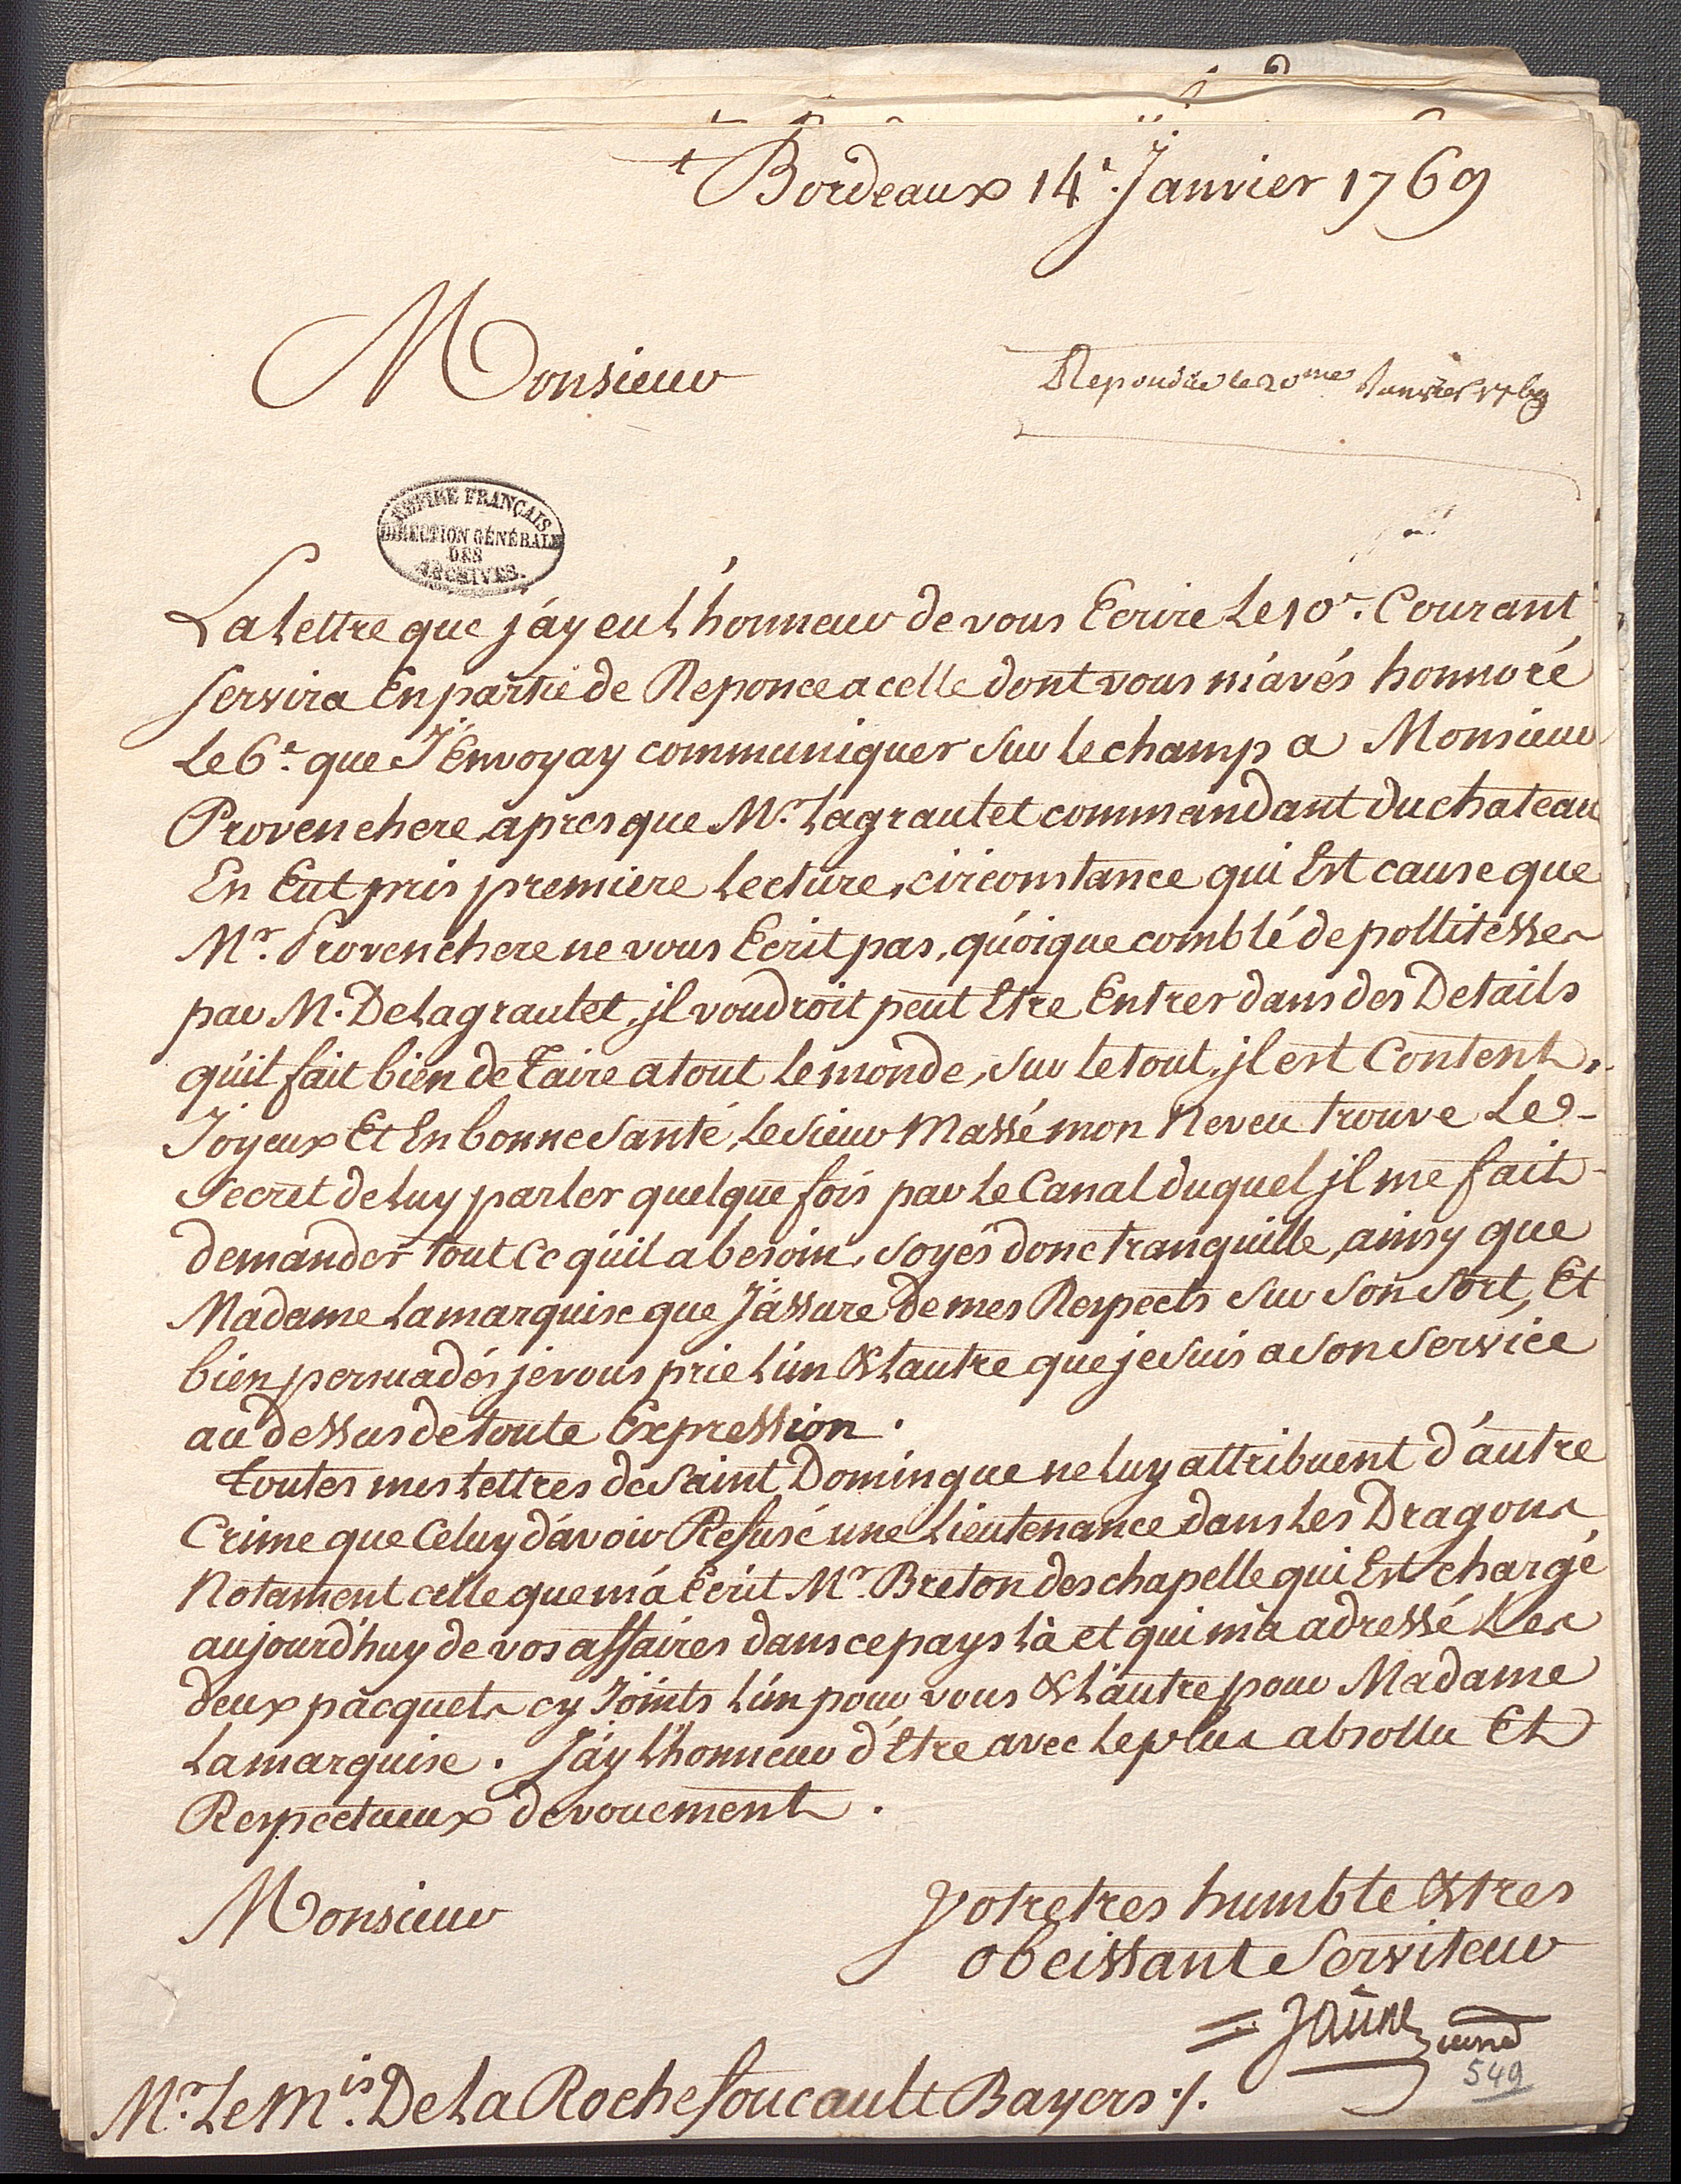 Bordeaux 14e. Janvier 1769
Monsieur
Repondue le 20me Janvier 1769
EMPIRE FRANÇAIS
DIRECTION GÉNÉRALE
DES
ARCHIVES.
La lettre que j'ay eu l'honneur de vous Ecrire Le 10e. Courant
servira En partie de Reponce a celle dont vous m'avés honnoré
Le 6e. que J'Envoyay communiquer sur le champ a Monsieur
Provenchere apres que Mr. Lagrautet commandant du chateau
En Eut pris premiere Lecture, circonstance qui Est cause que
Mr. Provenchere ne vous Ecrit pas, quóique comblé de pollitesses
par M. De Lagrautet, jl voudroit peut Etre Entrer dans des Details
qu'il fait bien de Taire a tout Le monde, sur le tout, jl est Content,
Joyeux Et En bonne santé, Le sieur Massé mon Neveu trouve Le
Secret de luy parler quelque fois par Le Canal duquel jl me fait
demander tout Ce qu'il a besoin, soyés donc tranquille, ainsy que
Madame Lamarquise que J'assure de mes Respects sur son sort, Et
bien persuadés je vous prie L'un & Lautre que je suis a son service
au dessus de toute Expression.
toutes mes Lettres de saint Domingue ne luy attribuent d'autre
Crime que Celuy d'avoir Refusé une Lieutenance dans Les Dragons
Notament celle que m'a Ecrit Mr. Breton deschapelle qui Est chargé
aujourd'huy de vos affaires dans ce pays là et qui m'a adressé Les
deux pacquets cy Joints L'un pour vous & L'autre pour Madame
Lamarquise. J'ay L'honneur d'Etre avec Le plus absollu Et
Respectueux devouement.
Monsieur
Votre tres humble & tres
obeissant Serviteur
549
Mr. Le Mis. De La Rochefoucault Bayers ./.